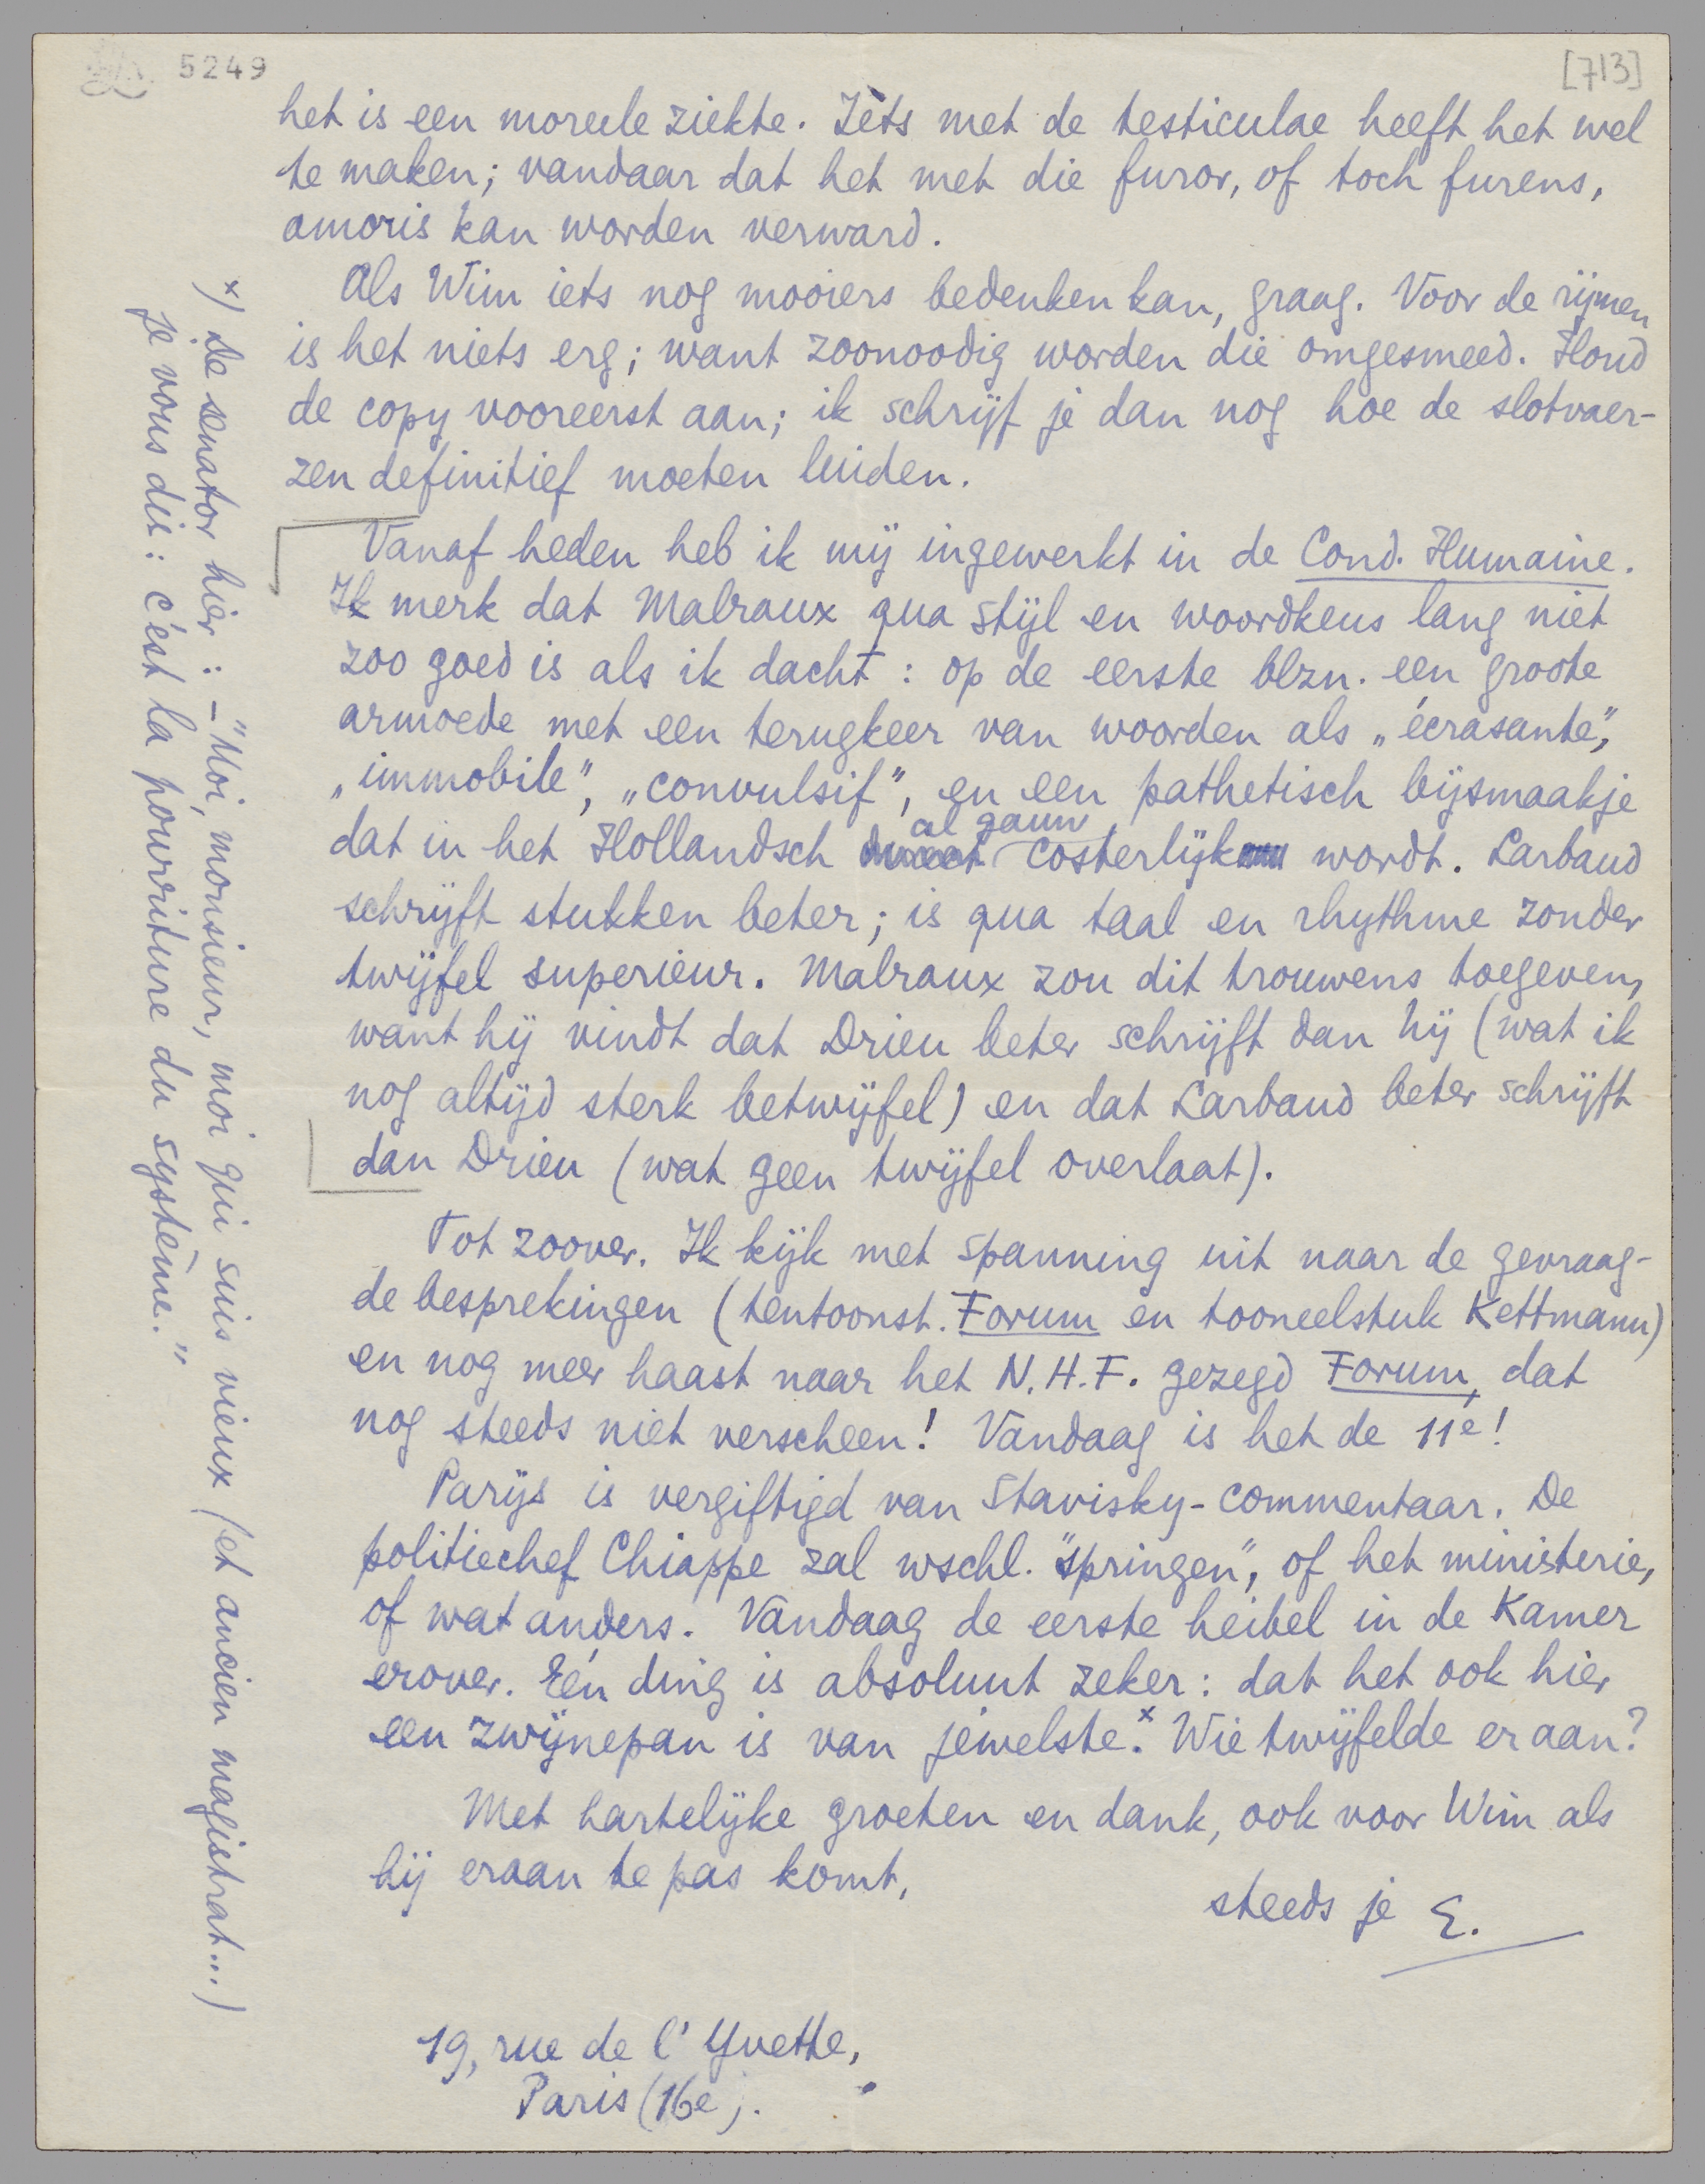 5249
[713]
het is een moreele ziekte. Iets met de testiculae heeft het wel
te maken; vandaar dat het met die furor, of toch furens,
amoris kan worden verward.
Als Wim iets nog mooiers bedenken kan, graag. Voor de rijmen
is het niets erg; want zoonoodig worden die omgesmeed. Houd
de copy vooreerst aan; ik schrijf je dan nog hoe de slotvaer-
zen definitief moeten luiden.
Vanaf heden heb ik mij ingewerkt in de Cond. Humaine.
Ik merk dat Malraux qua stijl en woordkeus lang niet
zoo goed is als ik dacht: op de eerste blzn. een groote
armoede met een terugkeer van woorden als „écrasante",
„immobile", „convulsif", en een pathetisch bijsmaakje
dat in het Hollandsch al gauw costerlijk wordt. Larbaud
schrijft stukken beter; is qua taal en rhythme zonder
twijfel superieur. Malraux zou dit trouwens toegeven,
want hij vindt dat Drieu beter schrijft dan hij (wat ik
nog altijd sterk betwijfel) en dat Larbaud beter schrijft
dan Drieu (wat geen twijfel overlaat).
Tot zoover. Ik kijk met spanning uit naar de gevraag-
de besprekingen (tentoonst. Forum en tooneelstuk Kettmann)
en nog meer haast naar het N.H.F. gezegd Forum, dat
nog steeds niet verscheen! Vandaag is het de 11e!
Parijs is vergiftigd van Stavisky-commentaar. De
politiechef Chiappe zal wschl. "springen", of het ministerie,
of wat anders. Vandaag de eerste heibel in de Kamer
erover. Eén ding is absoluut zeker: dat het ook hier
een zwijnepan is van jewelste.x Wie twijfelde eraan?
Met hartelijke groeten en dank, ook voor Wim als
hij eraan te pas komt,
steeds je E.
19, rue de l'Yvette,
Paris (16e).
x) De senator hier: – "Moi, monsieur, moi qui suis vieux (et ancien magistrat...)
je vous dis: c'est la pourriture du système."